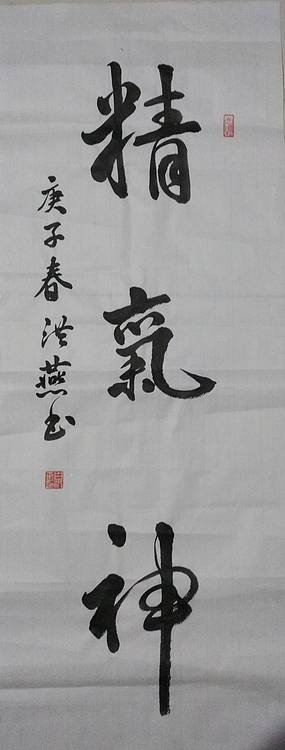 精氣神
庚子春洪燕书